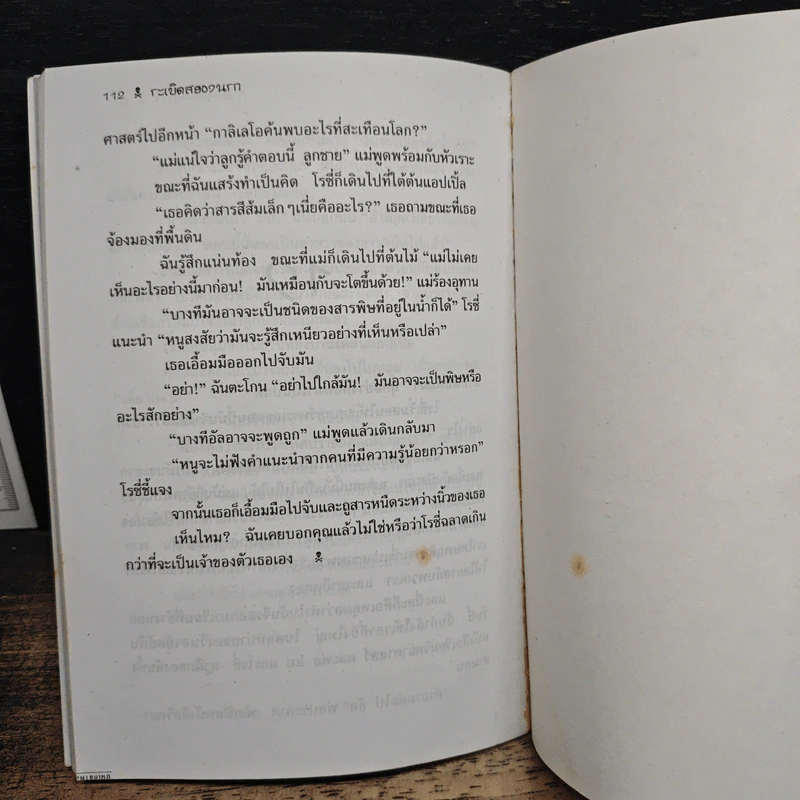 112 ☠ ระเบิดสยองนรก
ศาสตร์ไปอีกหน้า “กาลิเลโอค้นพบอะไรที่สะเทือนโลก?”
“แม่แน่ใจว่าลูกรู้คำตอบนี้ ลูกชาย” แม่พูดพร้อมกับหัวเราะ
ขณะที่ฉันแสร้งทำเป็นคิด โรซี่ก็เดินไปที่ใต้ต้นแอปเปิ้ล
“เธอคิดว่าสารสีส้มเล็กๆเนี่ยคืออะไร?” เธอถามขณะที่เธอ
จ้องมองที่พื้นดิน
ฉันรู้สึกแน่นท้อง ขณะที่แม่ก็เดินไปที่ต้นไม้ “แม่ไม่เคย
เห็นอะไรอย่างนี้มาก่อน! มันเหมือนกับจะโตขึ้นด้วย!” แม่ร้องอุทาน
“บางทีมันอาจจะเป็นชนิดของสารพิษที่อยู่ในน้ำก็ได้” โรซี่
แนะนำ “หนูสงสัยว่ามันจะรู้สึกเหนียวอย่างที่เห็นหรือเปล่า”
เธอเอื้อมมือออกไปจับมัน
“อย่า!” ฉันตะโกน “อย่าไปใกล้มัน! มันอาจจะเป็นพิษหรือ
อะไรสักอย่าง”
“บางทีอัลอาจจะพูดถูก” แม่พูดแล้วเดินกลับมา
“หนูจะไม่ฟังคำแนะนำจากคนที่มีความรู้น้อยกว่าหรอก”
โรซี่ชี้แจง
จากนั้นเธอก็เอื้อมมือไปจับและถูสารหนืดระหว่างนิ้วของเธอ
เห็นไหม? ฉันเคยบอกคุณแล้วไม่ใช่หรือว่าโรซี่ฉลาดเกิน
กว่าที่จะเป็นเจ้าของตัวเธอเอง ☠